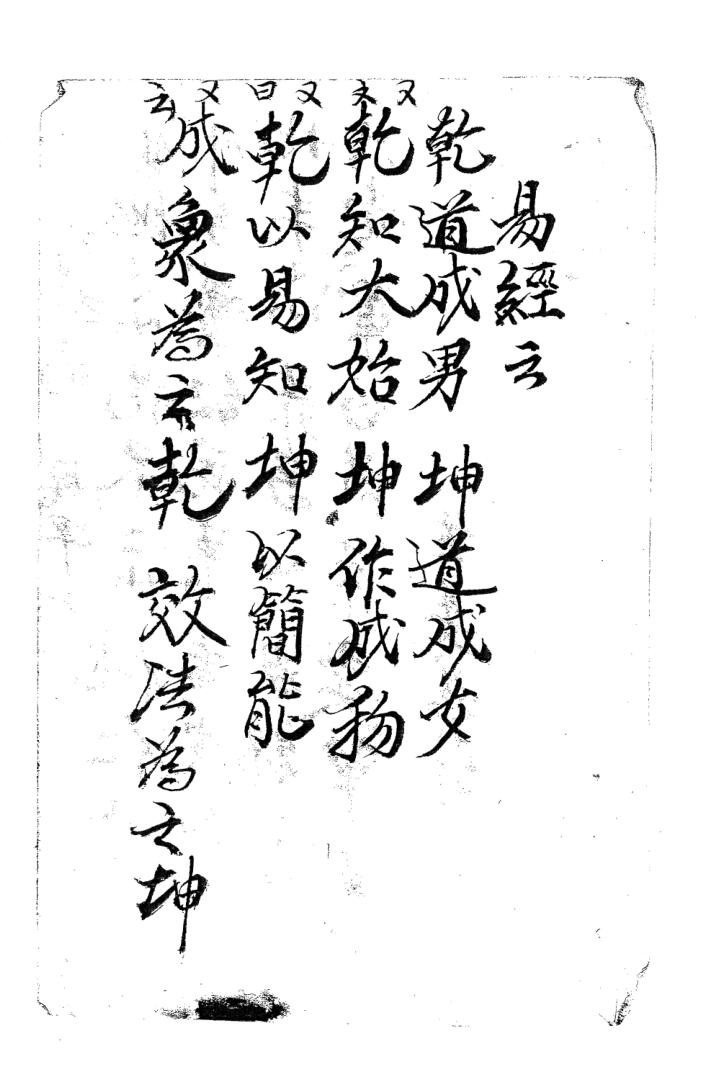 易經云
乾道成男 坤道成女
又文乾知大始 坤作成物
又曰乾以易知 坤以簡能
又云成象為之乾 效法為之坤